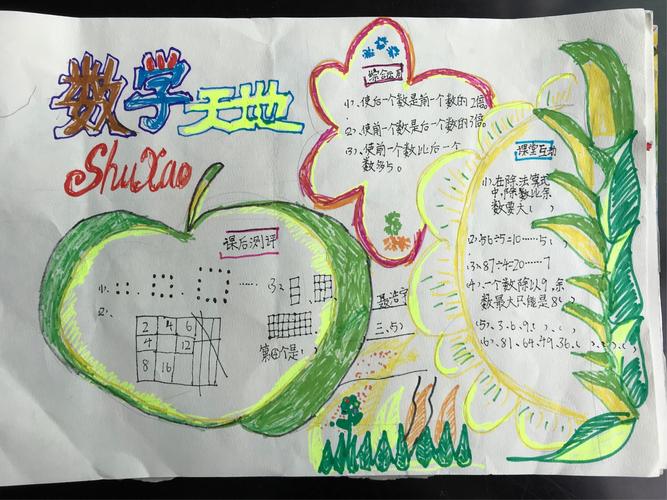 数学天地
ShuXao
综合应用
(1)、使后一个数是前一个数的2倍。
(2)、使前一个数是后一个数的3倍。
(3)、使前一个数比后一个
数多5。
课堂互动
(1)、在除法算式
中,除数比余
数要大(  )
(2)、56÷5=10……5(  )
(3)、87÷4=20……7
(4)、一个数除以9,余
数最大只能是8(  )
(5)、3、6、9、(  )、(  )
(6)、81、64、49、36、(  )、(  )、(  )、(  )
课后测评
(1)、
……
(3)、
2、
2 4 6
4 12
8 16
第④个是(  )
聂浩宇
三、(5)